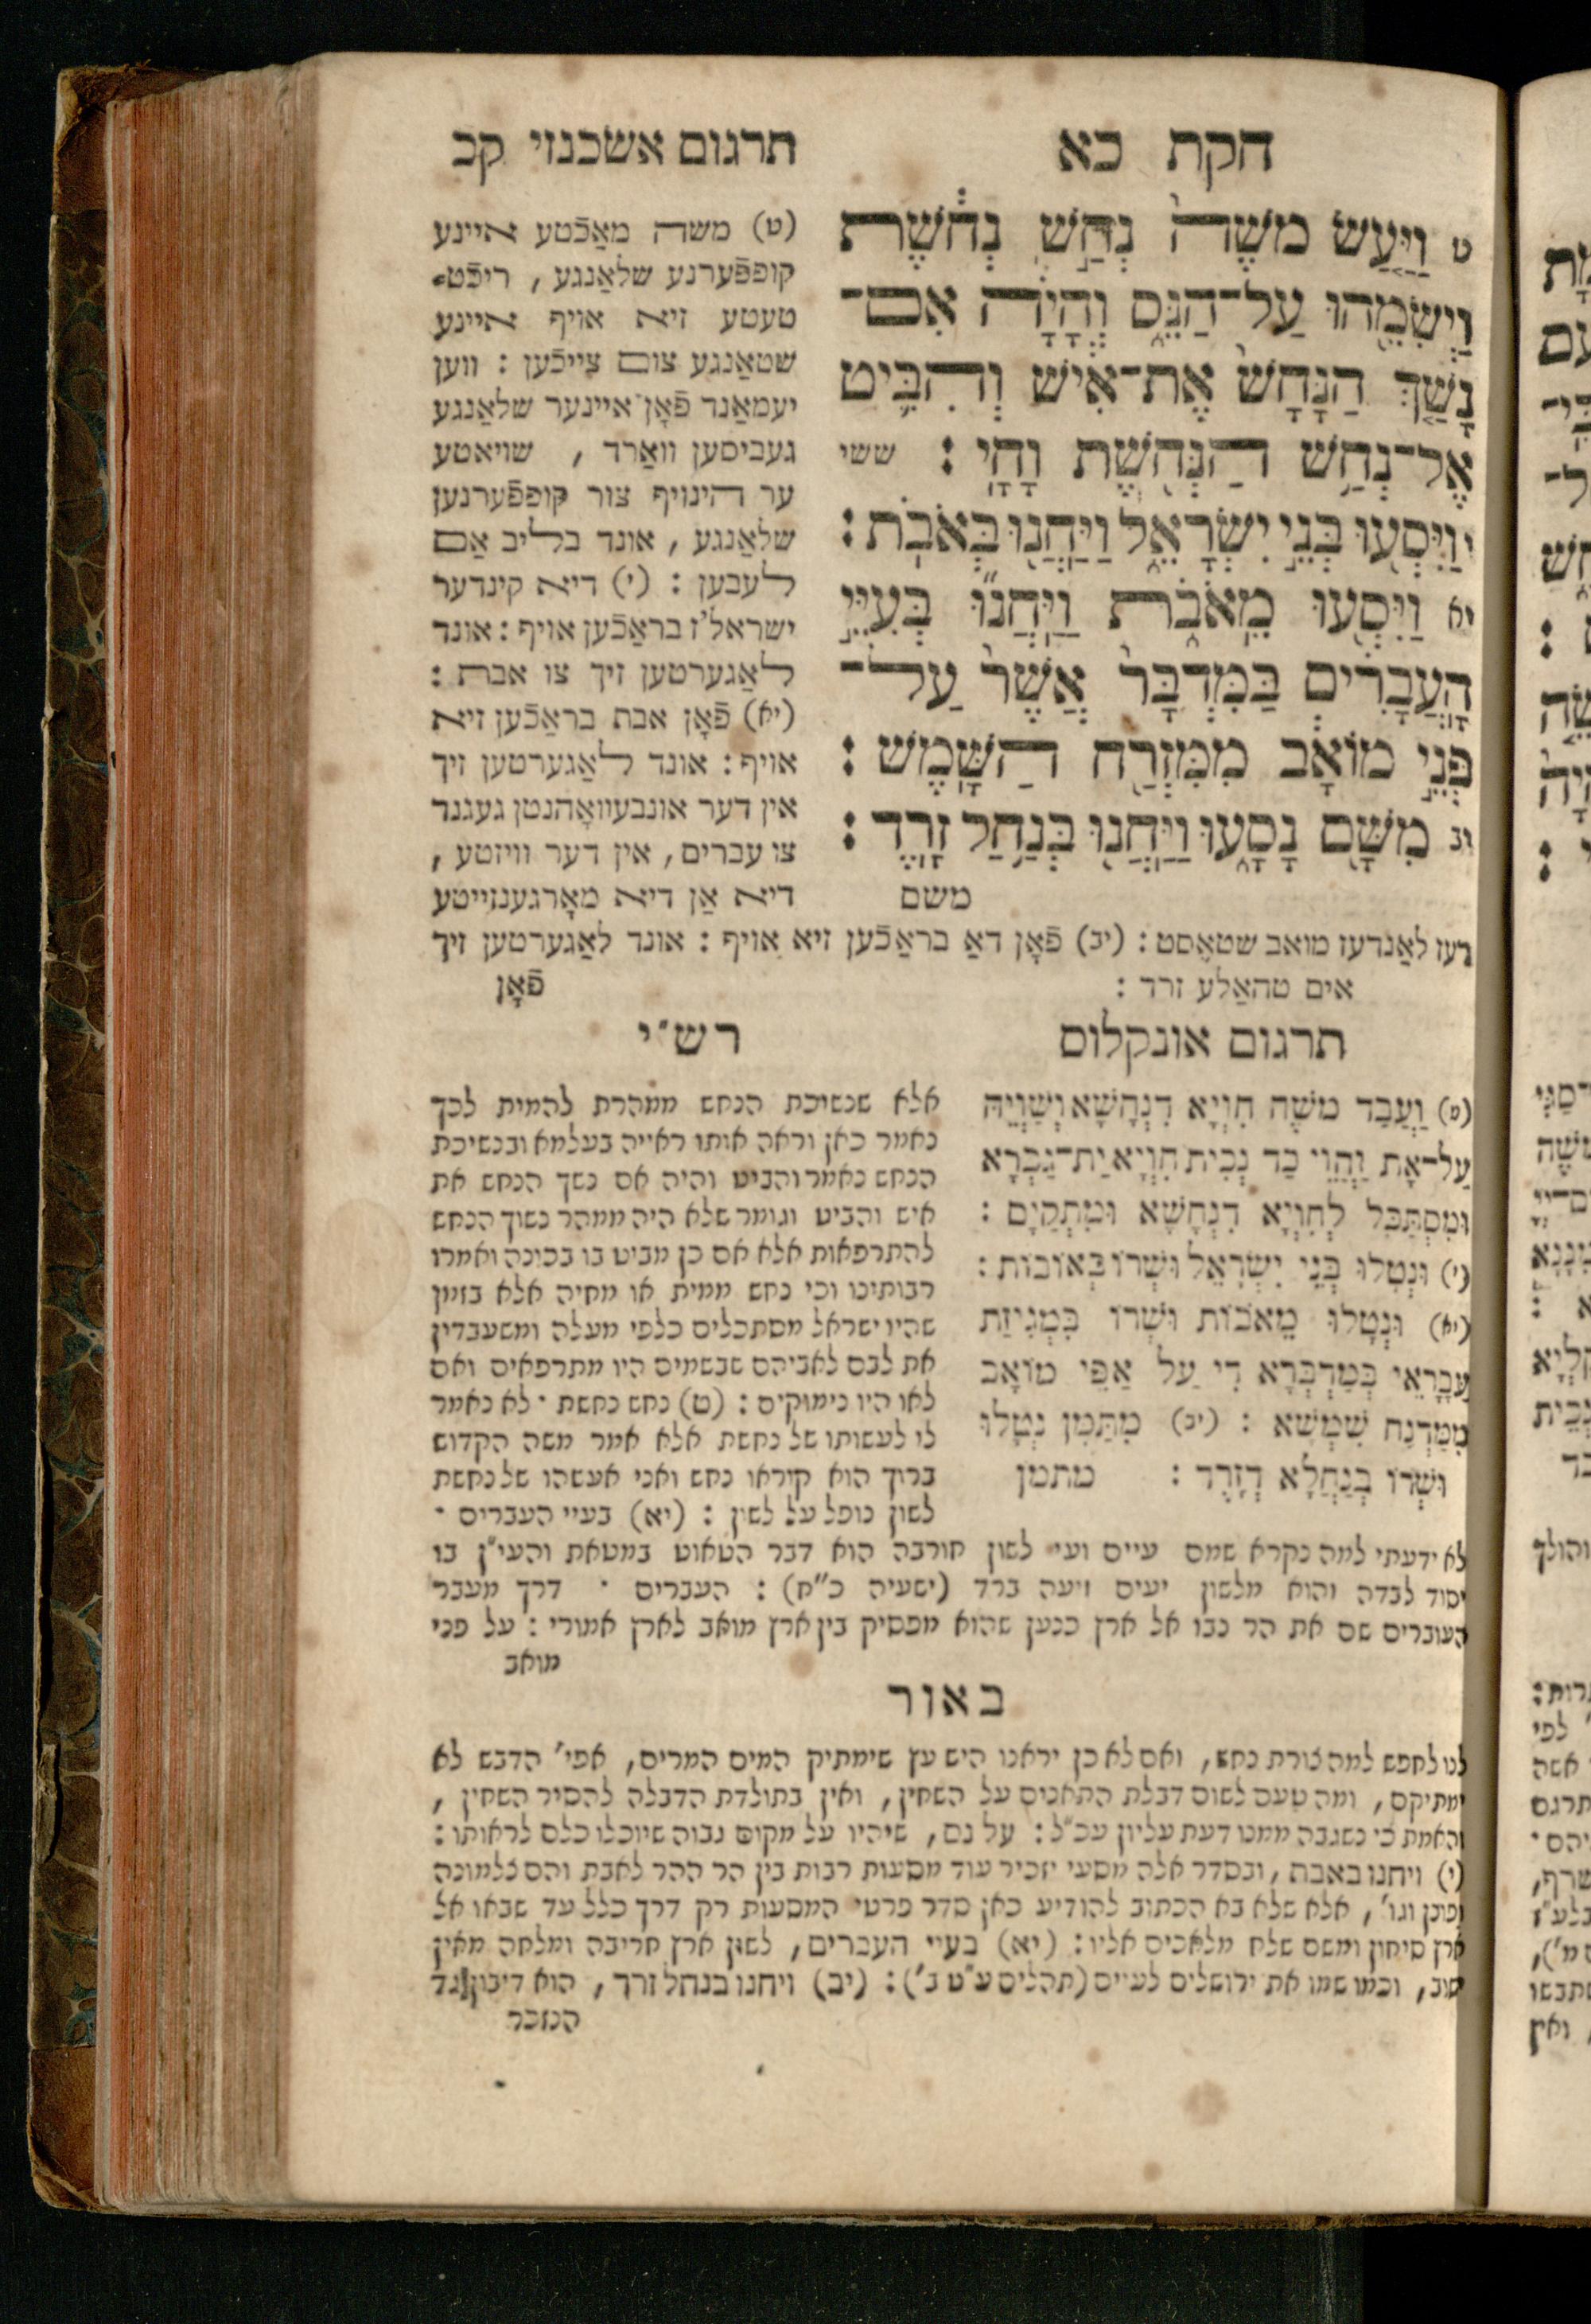 חקת כא
תרגום אשכנזי קכ
ט וַיַּעַשׂ מֹשֶׁה נְחַשׁ נְחֹשֶׁת
וַיְשִׂמֵהוּ עַל־הַנֵּס וְהָיָה אִם־
נָשַׁךְ הַנָּחָשׁ אֶת־אִישׁ וְהִבִּיט
אֶל־נְחַשׁ הַנְּחֹשֶׁת וָחָי : ששי
י וַיִּסְעוּ בְּנֵי יִשְׂרָאֵל וַיַּחֲנוּ בְּאֹבֹת :
יא וַיִּסְעוּ מֵאֹבֹת וַיַּחֲנוּ בְּעִיֵּי
הָעֲבָרִים בַּמִּדְבָּר אֲשֶׁר עַל־
פְּנֵי מוֹאָב מִמִּזְרַח הַשָּׁמֶשׁ :
יב מִשָּׁם נָסָעוּ וַיַּחֲנוּ בְּנַחַל זָרֶד :
משם
(ט) משה מאַכֿטע איינע
קופפֿערנע שלאַנגע , ריכֿט־
טעטע זיא אויף איינע
שטאַנגע צום צייכֿען : ווען
יעמאַנד פֿאָן איינער שלאַנגע
געביסען וואַרד , שויאטע
ער הינויף צור קופפֿערנען
שלאַנגע , אונד בליב אַם
לעבען : (י) דיא קינדער
ישראל'ז בראַכֿען אויף : אונד
לאַגערטען זיך צו אבת :
(יא) פֿאָן אבת בראַכֿען זיא
אויף : אונד לאַגערטען זיך
אין דער אונבעוואָהנטן געגנד
צו עברים , אין דער וויזטע ,
דיא אַן דיא מאָרגענזייטע
דעז לאַנדעז מואב שטאָסט : (יב) פֿאָן דאַ בראַכֿען זיא אויף : אונד לאַגערטען זיך
אים טהאַלע זרד :
פֿאָן
תרגום אונקלוס
(ט) וַעֲבַד מֹשֶׁה חִוְיָא דִנְחָשָׁא וְשַׁוְיֵהּ
עַל־אָת וַהֲוֵי כַּד נְכִית חִוְיָא יַת־גַּבְרָא
וּמִסְתַּכַּל לְחִוְיָא דִנְחָשָׁא וּמִתְקַיָּם :
(י) וּנְטָלוּ בְּנֵי יִשְׂרָאֵל וּשְׁרוֹ בְּאוֹבוֹת :
(יא) וּנְטָלוּ מֵאֹבוֹת וּשְׁרוֹ בִּמְגִיזַת
עִבְרָאֵי בְּמַדְבְּרָא דִי עַל אַפֵּי מוֹאָב
מִמַּדְנַח שִׁמְשָׁא : (יב) מִתַּמָּן נְטָלוּ
וּשְׁרוֹ בְּנַחֲלָא דְזָרֶד : מתמן
רש"י
אלא שנשיכת הנחש ממהרת להמית לכך
נאמר כאן וראה אותו ראייה בעלמא ובנשיכת
הנחש נאמר והביט והיה אם נשך הנחש את
איש והביט וגומר שלא היה ממהר נשוך הנחש
להתרפאות אלא אם כן מביט בו בכונה ואמרו
רבותינו וכי נחש ממית או מחיה אלא בזמן
שהיו ישראל מסתכלים כלפי מעלה ומשעבדין
את לבם לאביהם שבשמים היו מתרפאים ואם
לאו היו נימוקים : (ט) נחש נחשת · לא נאמר
לו לעשותו של נחשת אלא אמר משה הקדוש
ברוך הוא קוראו נחש ואני אעשהו של נחשת
לשון נופל על לשון : (יא) בעיי העברים ·
לא ידעתי למה נקרא שמם עיים ועי לשון חורבה הוא דבר הטאוט במטאטא והעי"ן בו
יסוד לבדה והוא מלשון יעים ויעה ברד (ישעיה כ"ח) : העברים · דרך מעבר
העוברים שם את הר נבו אל ארץ כנען שהוא מפסיק בין ארץ מואב לארץ אמורי : על פני
מואב
באור
לנו לחפש למה צורת נחש, ואם לא כן יראנו היש עץ שימתיק המים המרים, אפי' הדבש לא
ימתיקם, ומה טעם לשום דבלת התאנים על השחין, ואין בתולדת הדבלה להסיר השחין ,
והאמת כי נשגבה ממנו דעת עליון עכ"ל: על נס, שיהיו על מקום גבוה שיוכלו כלם לראותו :
(י) ויחנו באבת , ובסדר אלה מסעי יזכיר עוד מסעות רבות בין הר ההר לאבת והם צלמונה
ופונן וגו', אלא שלא בא הכתוב להודיע כאן סדר פרטי המסעות רק דרך כלל עד שבאו אל
ארץ סיחון ומשם שלח מלאכים אליו : (יא) בעיי העברים, לשון ארץ חריבה ומלחה מאין
ישוב, וכמו שמו את ירושלים לעיים (תהלים ע"ט ב') : (יב) ויחנו בנחל זרד , הוא דיבון גד
הנזכר